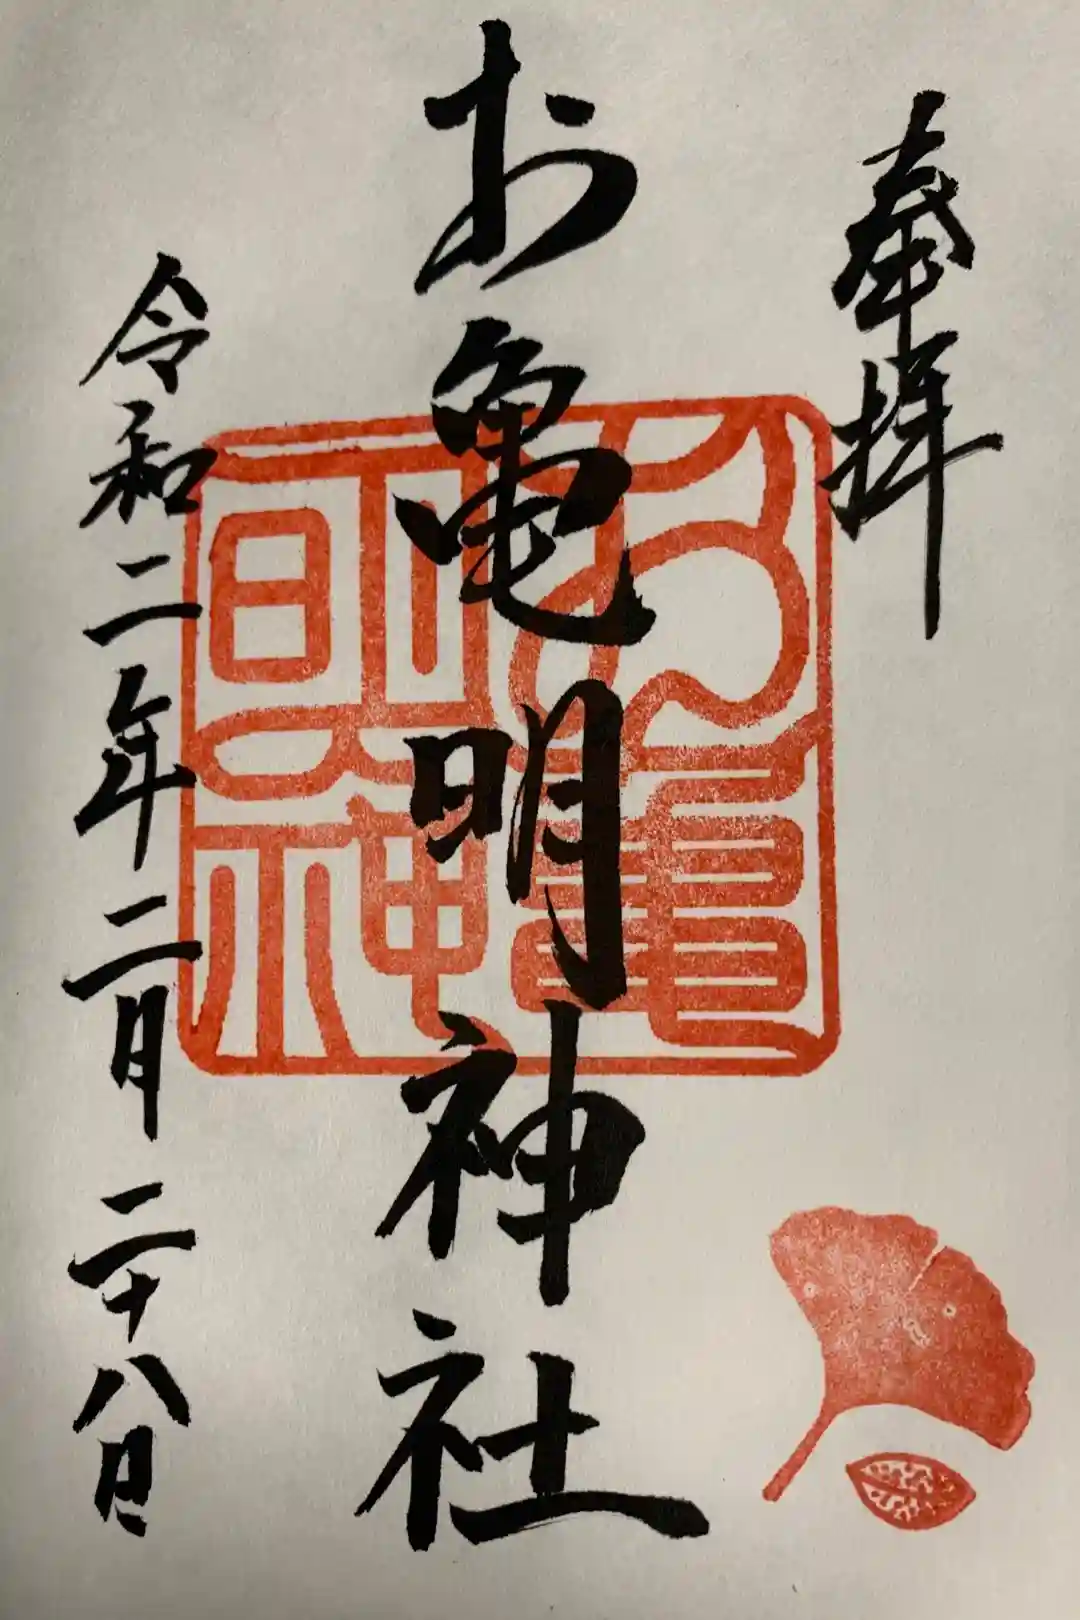 奉拝
お亀明神社
令和二年二月二十八日
お亀
明神社